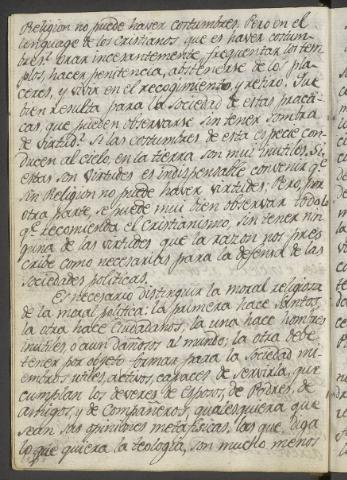 Religion no puede haver costumbres. Pero en el
lenguage de los Cristianos que es haver costum-
bres? orar incesantemente, frequentar los tem-
plos, hacer penitencia, abstenerse de los pla-
ceres, y vivir en el recogimiento, y retiro. Que
bien resulta para la Sociedad de estas practi-
cas que pueden observarse sin tener sombra
de virtud? Si las costumbres de esta especie con-
ducen al cielo, en la tierra son mui inutiles. Si
estas son virtudes es indispensable convenir qe.
sin Religion no puede haver virtudes: Pero por
otra parte, se puede mui bien observar todo lo
qe. recomienda el Cristianismo, sin tener nin
guna de las virtudes que la razon nos pres
cribe como necesarias para la defensa de las
sociedades politicas.
Es necesario distinguir la moral religiosa
de la moral politica: la primera hace Santos,
la otra hace Ciudadanos; la una hace hombres
inutiles o aun dañosos al mundo; la otra debe
tener por objeto formar para la Sociedad mi-
embros utiles, activos, capaces de servirla, que
cumplan los deveres de Esposos, de Padres, de
amigos, y de Compañeros, qualesquiera que
sean sus opiniones metafisicas, las que, diga
lo que quiera la teología, son mucho menos